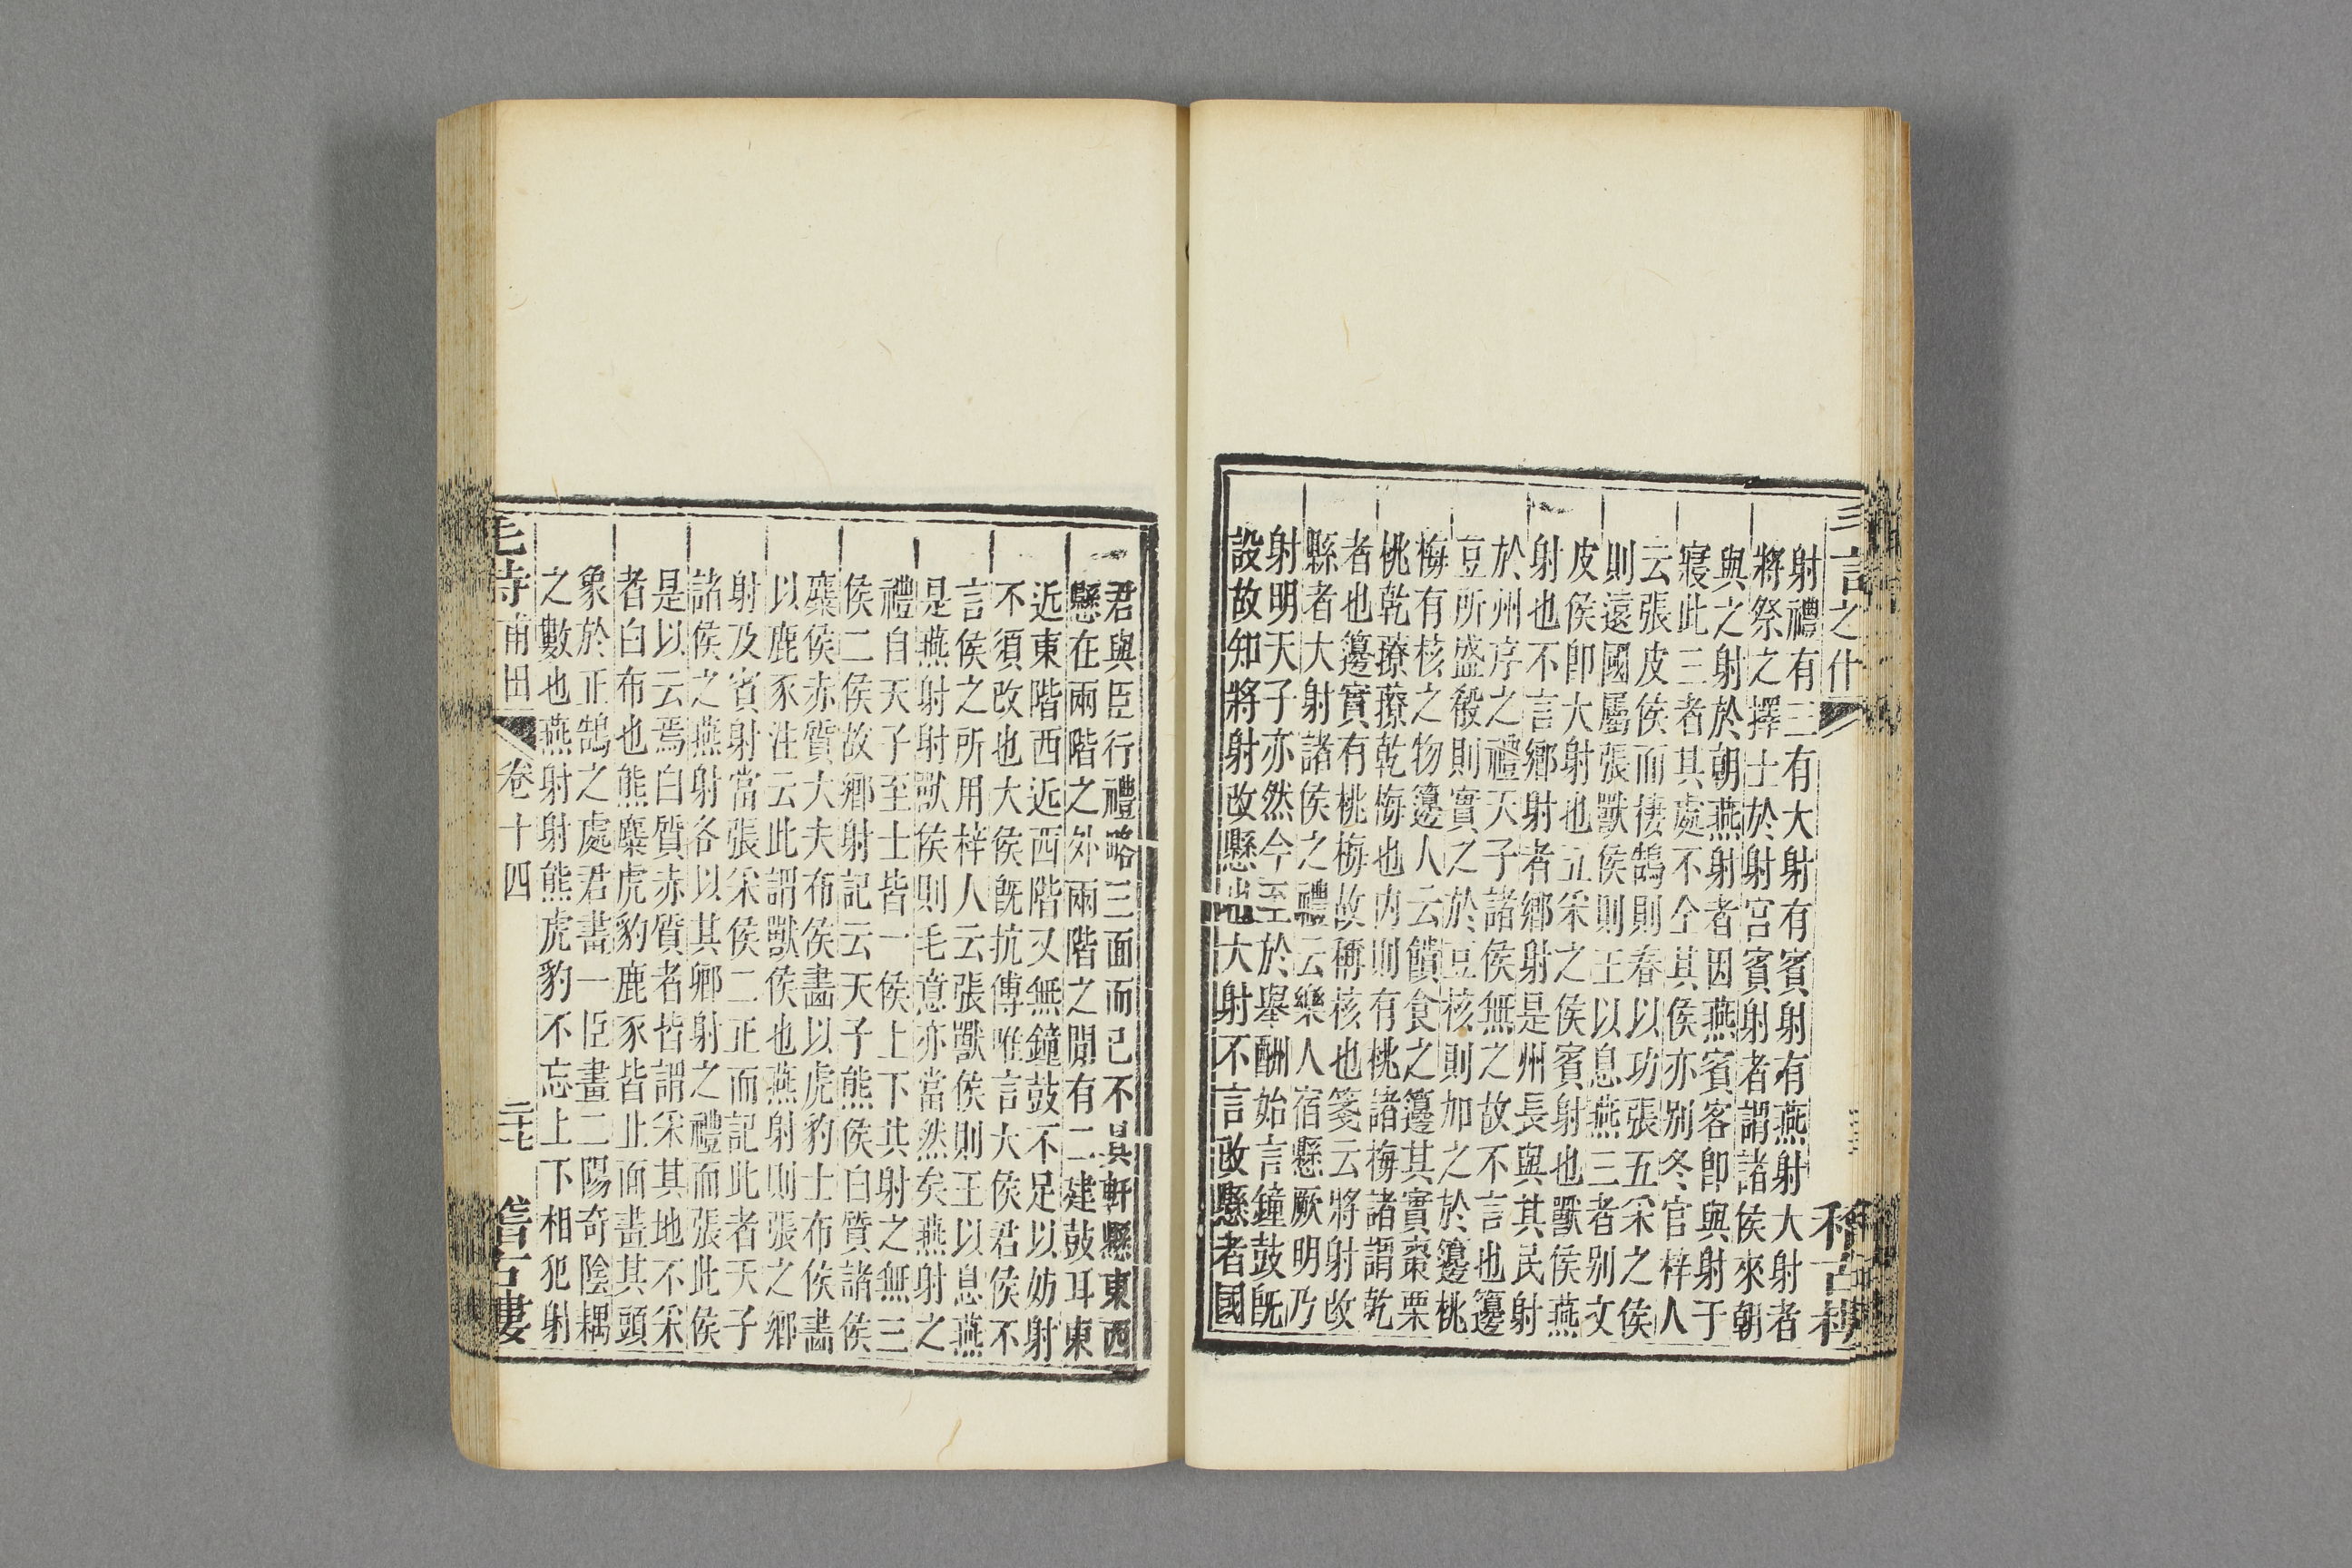 射禮有三有大射有賓射有燕射大射者
將祭之擇士於射宮賓射者謂諸侯來朝
與之射於朝燕射者因燕賓客即與射于
寢此三者其處不仝其侯亦别冬官梓人
云張皮侯而棲鵠則春以功張五采之侯
則遠國屬張獸侯則王以息燕三者别文
皮侯即大射也五采之侯賓射也獸侯燕
射也不言鄉射者鄉射是州長與其民射
於州序之禮天子諸侯無之故不言也籩
豆所盛殽則實之於豆核則加之於籩桃
梅有核之物籩人云饋食之籩其實棗栗
桃乾䕩䕩乾梅也内則有桃諸梅諸謂乾
者也籩實有桃梅故稱核也箋云將射改
縣者大射諸侯之禮云樂人宿懸厥明乃
射明天子亦然今至於舉酬始言鐘鼓既
設故知將射改懸也大射不言改懸者國
君與臣行禮略三面而已不具軒懸東西
懸在兩階之外兩階之間有二建鼓耳東
近東階西近西階又無鐘鼓不足以妨射
不須改也大侯既抗傳唯言大侯君侯不
言侯之所用梓人云張獸侯則王以息燕
是燕射射獸侯則毛意亦當然矣燕射之
禮自天子至士皆一侯上下共射之無三
侯二侯故鄉射記云天子熊侯白質諸侯
麋侯赤質大夫布侯畵以虎豹士布侯畵
以鹿豕注云此謂獸侯也燕射則張之鄉
射及賓射當張采侯二正而記此者天子
諸侯之燕射各以其鄉射之禮而張此侯
是以云焉白質赤質者皆謂采其地不采
者白布也熊麋虎豹鹿豕皆正面畫其頭
象於正鵠之處君畫一臣畫二陽奇陰耦
之數也燕射射熊虎豹不忘上下相犯射
卷十四
二七